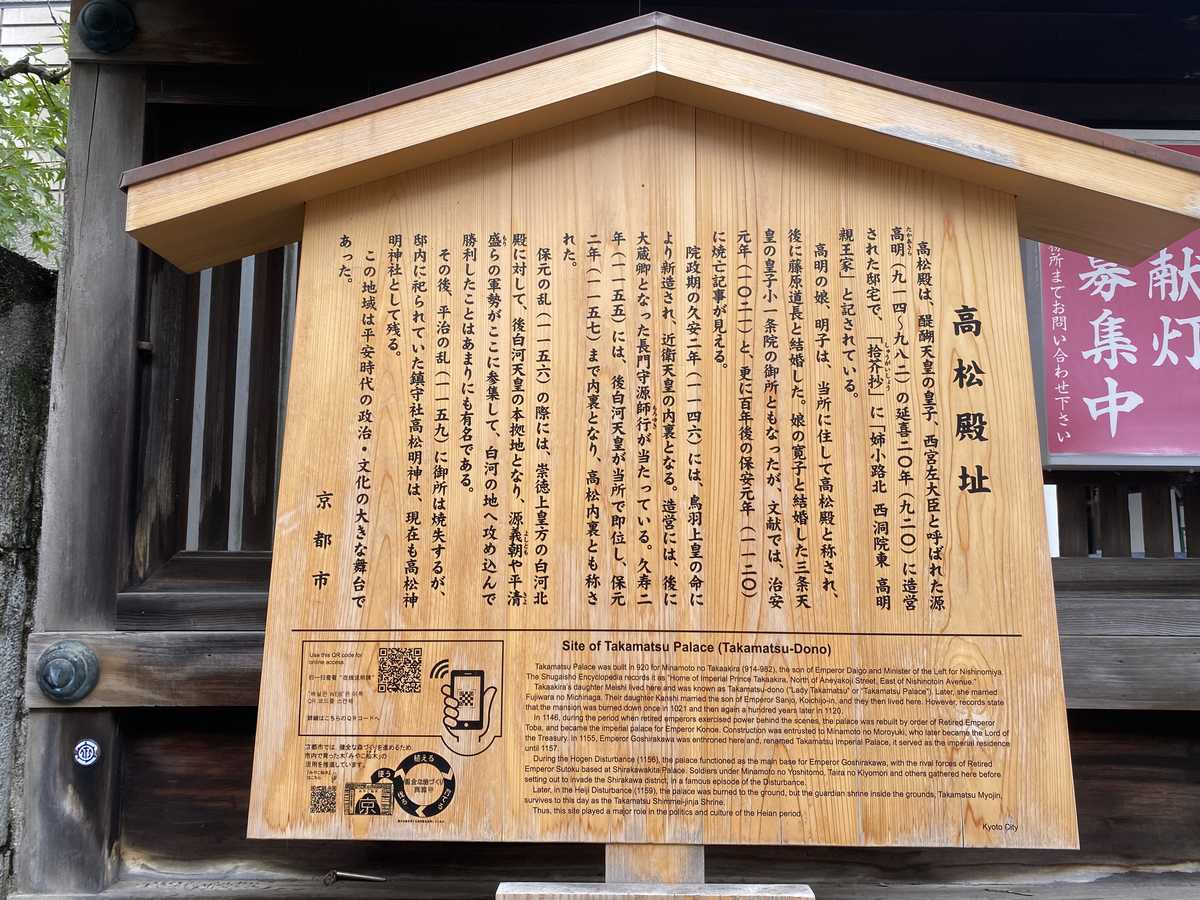 高松殿址
高松殿は、醍醐天皇の皇子、西宮左大臣と呼ばれた源
高明（九一四〜九八二）の延喜二〇年（九二〇）に造営
された邸宅で、「拾芥抄」に「姉小路北 西洞院東 高明
親王家」と記されている。
高明の娘、明子は、当所に住して高松殿と称され、
後に藤原道長と結婚した。娘の寛子と結婚した三条天
皇の皇子小一条院の御所ともなったが、文献では、治安
元年（一〇二一）と、更に百年後の保安元年（一一二〇）
に焼亡記事が見える。
院政期の久安二年（一一四六）には、鳥羽上皇の命に
より新造され、近衛天皇の内裏となる。造営には、後に
大蔵卿となった長門守源師行が当たっている。久寿二
年（一一五五）には、後白河天皇が当所で即位し、保元
二年（一一五七）まで内裏となり、高松内裏とも称さ
れた。
保元の乱（一一五六）の際には、崇徳上皇方の白河北
殿に対して、後白河天皇の本拠地となり、源義朝や平清
盛らの軍勢がここに参集して、白河の地へ攻め込んで
勝利したことはあまりにも有名である。
その後、平治の乱（一一五九）に御所は焼失するが、
邸内に祀られていた鎮守社高松明神は、現在も高松神
明神社として残る。
この地域は平安時代の政治・文化の大きな舞台で
あった。
京都市
Site of Takamatsu Palace (Takamatsu-Dono)
Takamatsu Palace was built in 920 for Minamoto no Takaakira (914-982), the son of Emperor Daigo and Minister of the Left for Nishinomiya.
The Shugaishō Encyclopedia records it as "Home of Imperial Prince Takaakira, North of Aneyakoji Street, East of Nishinotoin Avenue."
Takaakira's daughter Meishi lived here and was known as Takamatsu-dono ("Lady Takamatsu" or "Takamatsu Palace"). Later, she married
Fujiwara no Michinaga. Their daughter Kanshi married the son of Emperor Sanjo, Koichijo-in, and they then lived here. However, records state
that the mansion was burned down once in 1021 and then again a hundred years later in 1120.
In 1146, during the period when retired emperors exercised power behind the scenes, the palace was rebuilt by order of Retired Emperor
Toba, and became the imperial palace for Emperor Konoe. Construction was entrusted to Minamoto no Moroyuki, who later became the Lord of
the Treasury. In 1155, Emperor Goshirakawa was enthroned here and, renamed Takamatsu Imperial Palace, it served as the imperial residence
until 1157.
During the Hogen Disturbance (1156), the palace functioned as the main base for Emperor Goshirakawa, with the rival forces of Retired
Emperor Sutoku based at Shirakawakita Palace. Soldiers under Minamoto no Yoshitomo, Taira no Kiyomori and others gathered here before
setting out to invade the Shirakawa district, in a famous episode of the Disturbance.
Later, in the Heiji Disturbance (1159), the palace was burned to the ground, but the guardian shrine inside the grounds, Takamatsu Myojin,
survives to this day as the Takamatsu Shimmei-jinja Shrine.
Thus, this site played a major role in the politics and culture of the Heian period.
Kyoto City
Use this QR code for
online access.
詳細はこちらのQRコードへ
京都市では、健全な森づくりを進めるため、
市内で育った木「みやこ杣木」の
活用を推進しています。
「みやこ杣木」の
はこちら
植える
使う
京
献灯
募集中
務所までお問い合わせ下さい